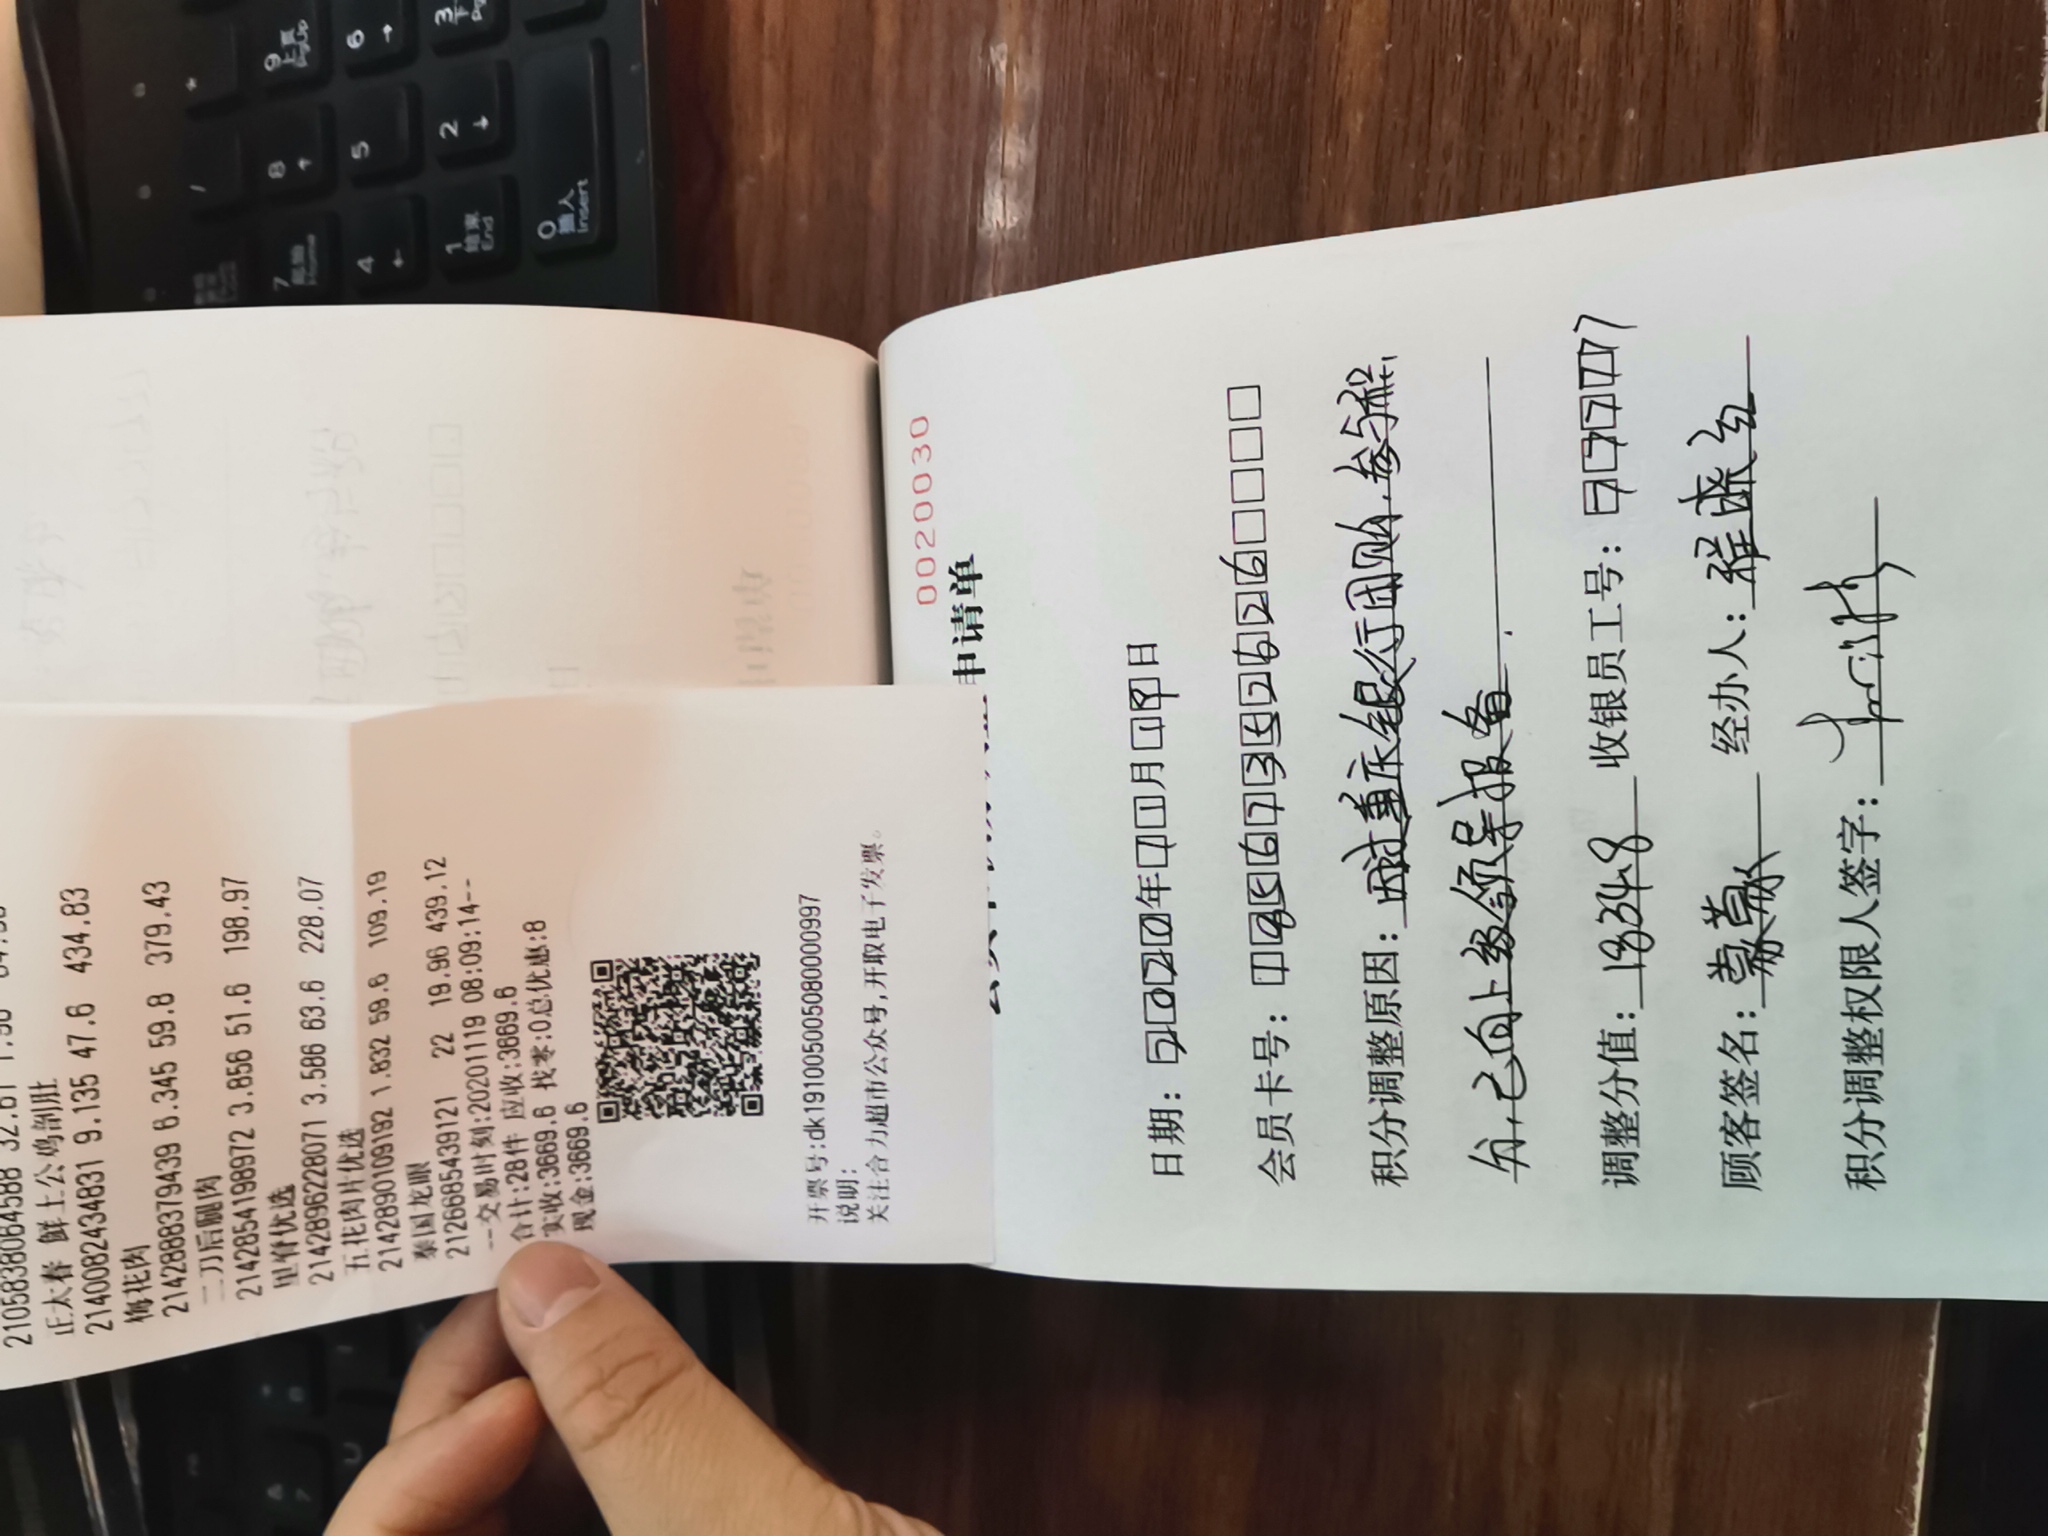 正大春 鲜上公鸡剖肚
214008243483​1 9.135 47.6 434.83
梅花肉
2142888379439 6.345 59.8 379.43
二刀后腿肉
2142854198972 3.856 51.6 198.97
里脊优选
2142896228071 3.586 63.6 228.07
五花肉片优选
2142890109192 1.832 59.6 109.19
泰国龙眼
2126685439121 22 19.96 439.12
--交易时刻:20201119 08:09:14--
合计:28件 应收:3669.6
实收:3669.6 找零:0总优惠:8
现金:3669.6
开票号:dk191005005080000997
说明:
关注合力超市公众号,开取电子发票。
0020030
申请单
日期: 2020年11月19日
会员卡号: 18567352626
积分调整原因: 因对重庆银行团购,参与积
分,已向上级领导报备.
调整分值: 18348 收银员工号: 7777
顾客签名: 蒙 经办人: 程盛
积分调整权限人签字:
9 上页 PgUp
6
3
PgDn
*
/
8
5
2
7
4
1 结束 End
0 插入 Insert